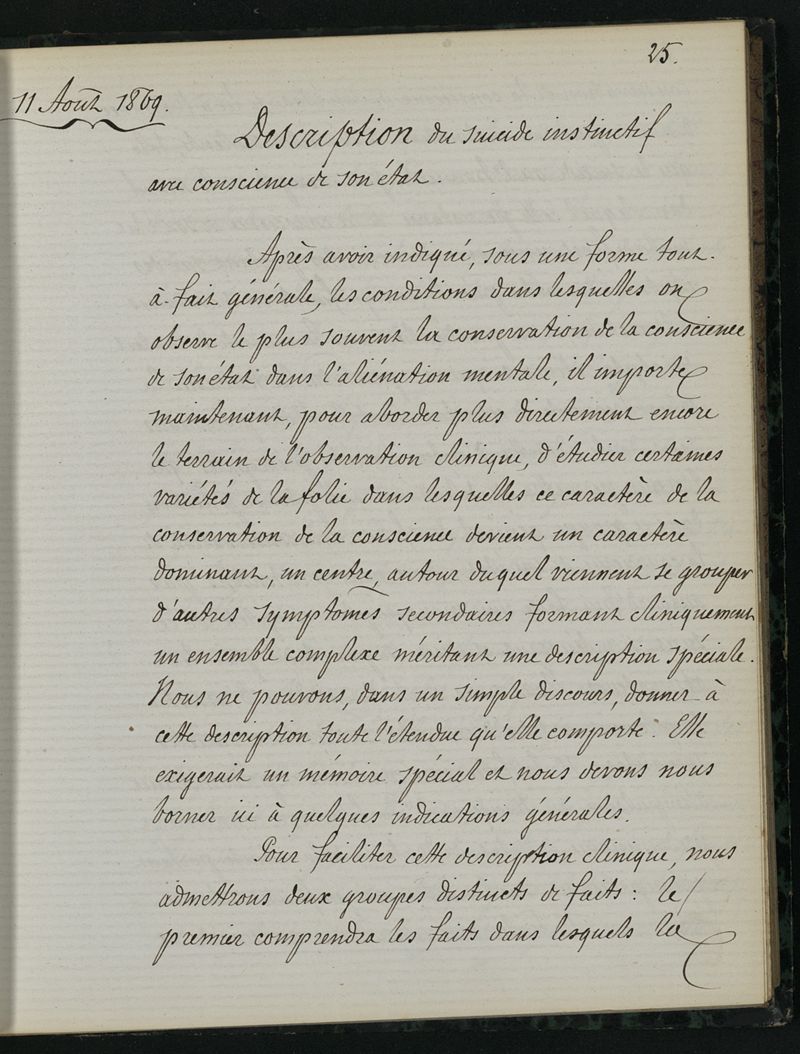 25.
11 Août 1869.
Description du suicide instinctif
avec conscience de son état.
Après avoir indiqué, sous une forme tout-
à-fait générale, les conditions dans lesquelles on
observe le plus souvent la conservation de la conscience
de son état dans l'aliénation mentale, il importe
maintenant, pour aborder plus directement encore
le terrain de l'observation clinique, d'étudier certaines
variétés de la folie dans lesquelles ce caractère de la
conservation de la conscience devient un caractère
dominant, un centre, autour duquel viennent se grouper
d'autres symptomes secondaires formant cliniquement
un ensemble complexe méritant une description spéciale.
Nous ne pouvons, dans un simple discours, donner à
cette description toute l'étendue qu'elle comporte. Elle
exigerait un mémoire spécial et nous devons nous
borner ici à quelques indications générales.
Pour faciliter cette description clinique, nous
admettrons deux groupes distincts de faits : le
premier comprendra les faits dans lesquels la